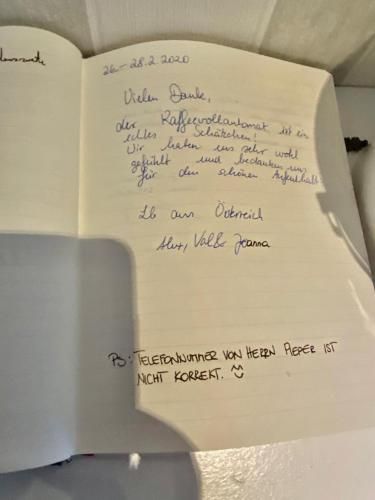 26.-28.2.2020
Vielen Danke,
der Kaffeevollautomat ist ein
echtes Schätzchen!
Wir haben uns sehr wohl
gefühlt und bedanken uns
für den schönen Aufenthalt.
LG aus Österreich
Joanna
PS: TELEFONNUMMER VON HERRN PIEPER IST
NICHT KORREKT. ☺